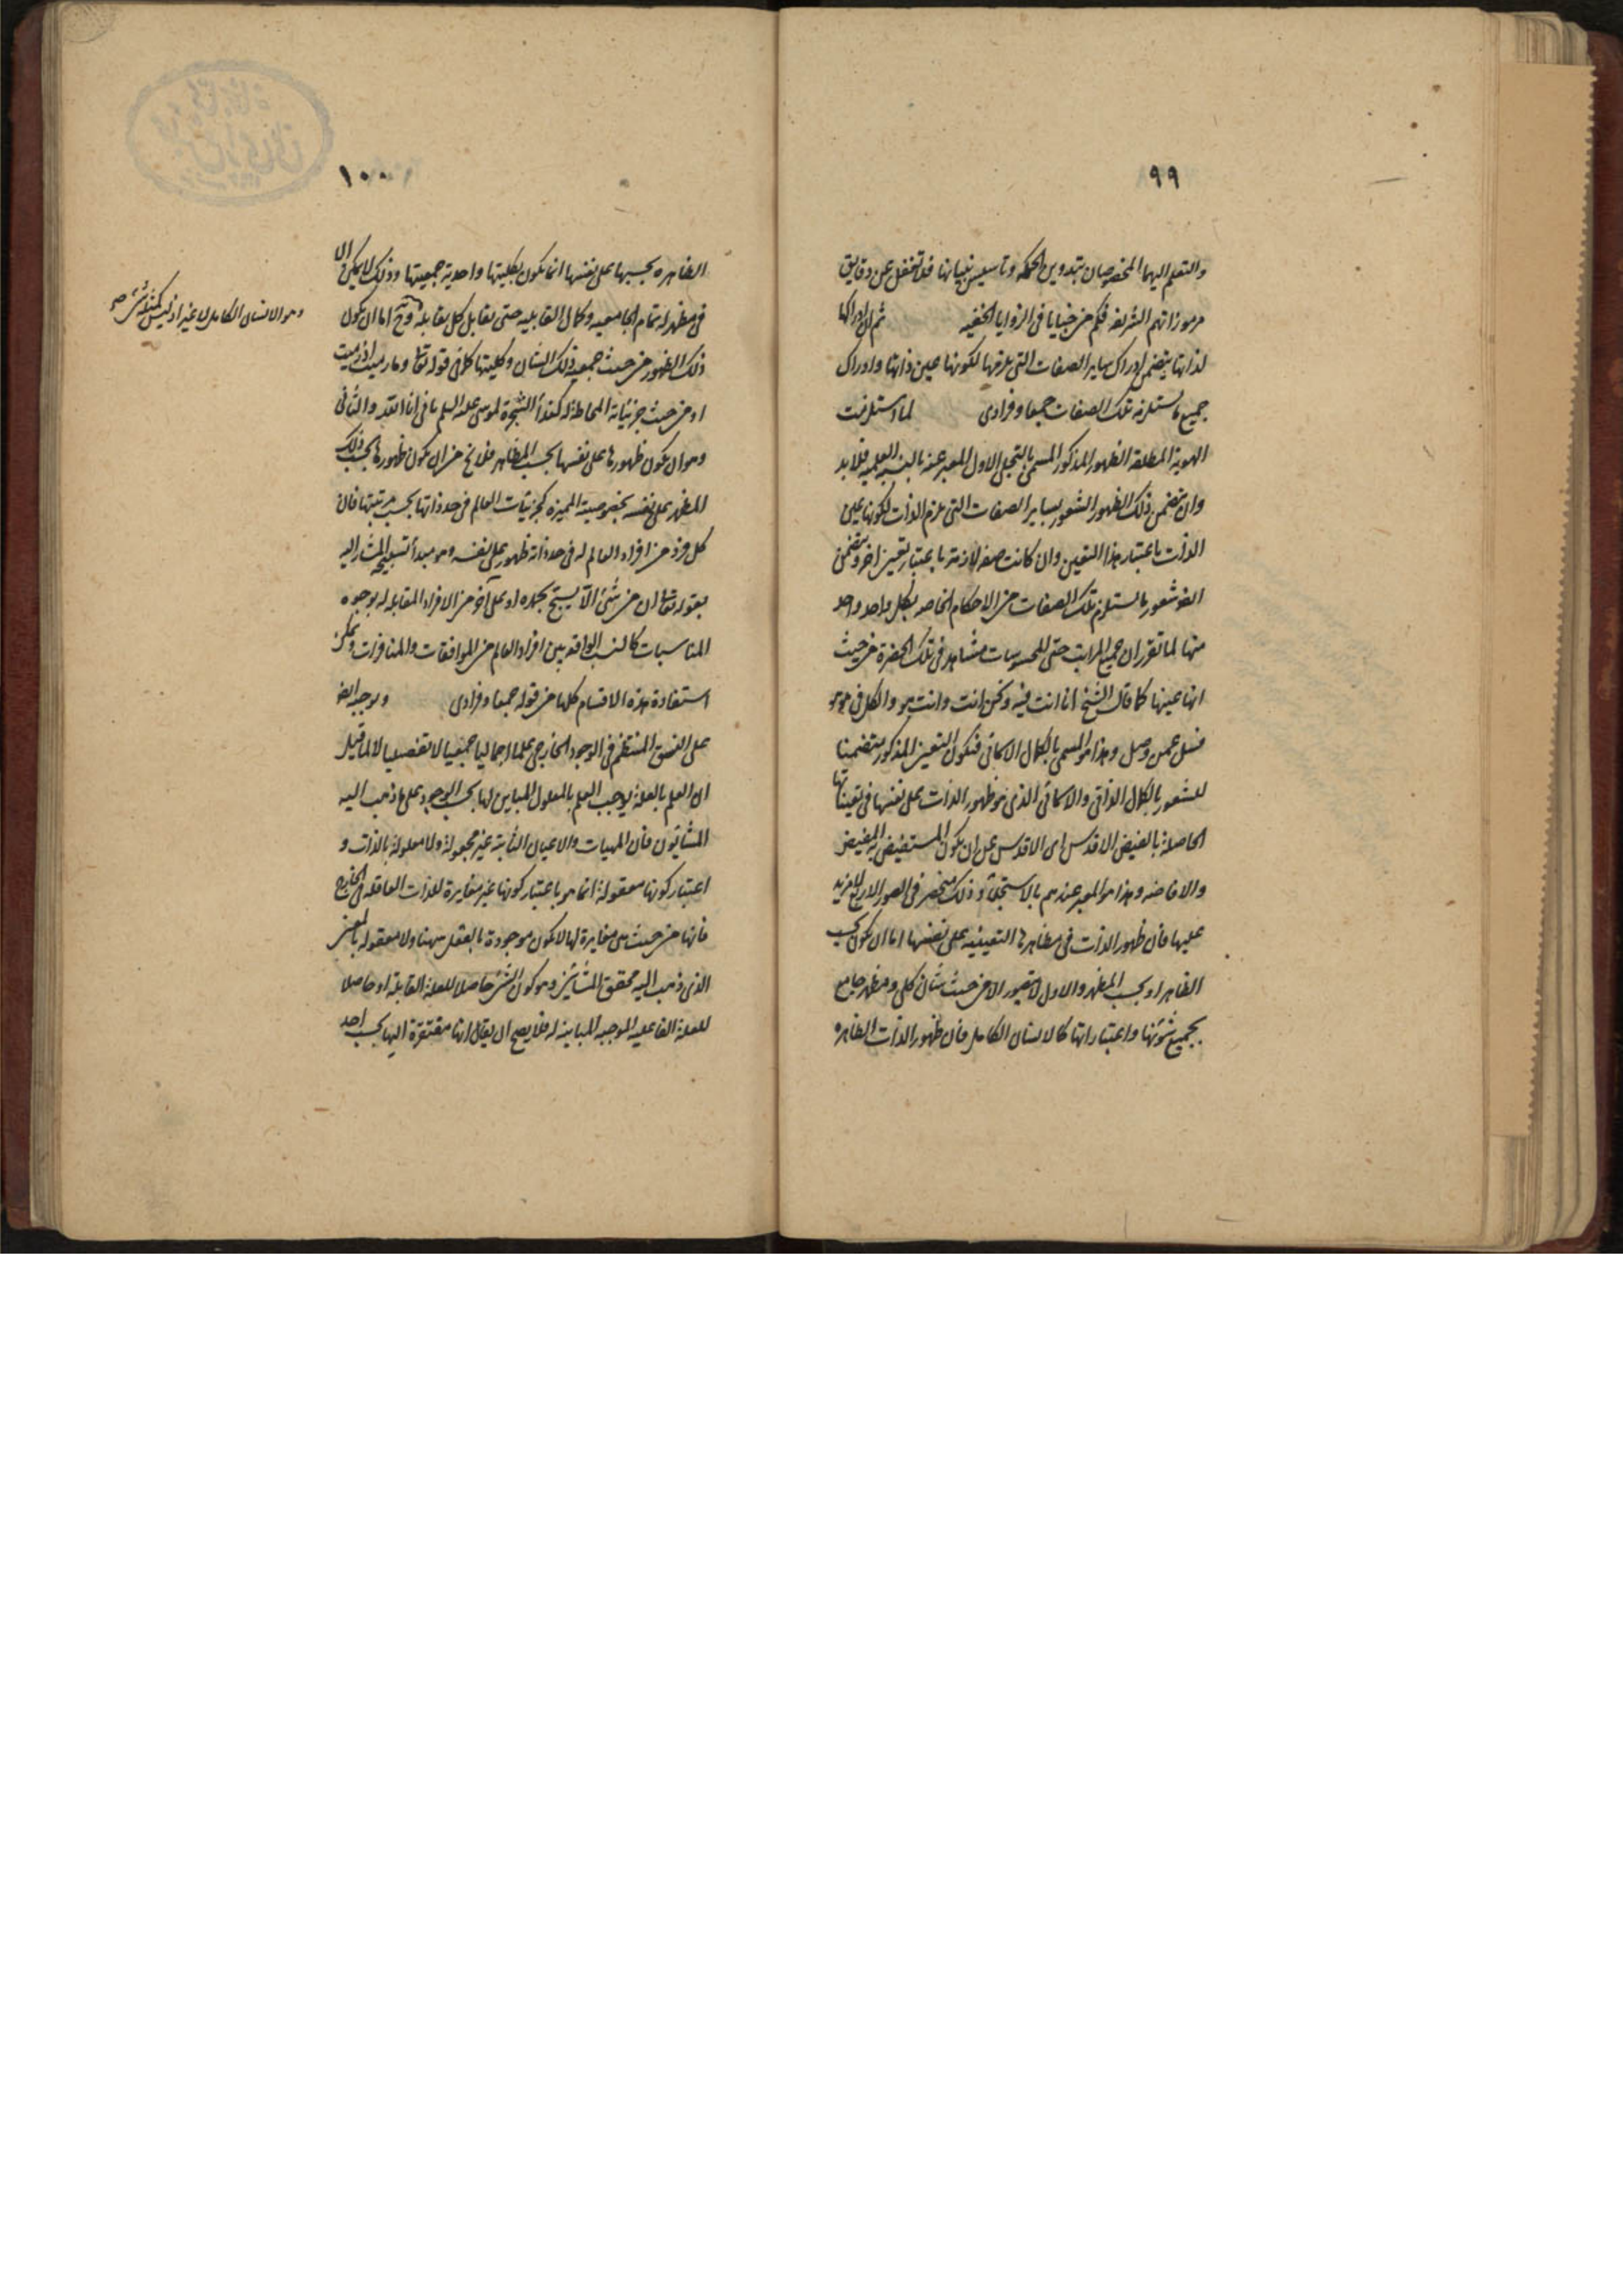 ٩٩
والتعلم اليهما المخصوصان بتدوين الحكمه وتاسيس بنيانها فلا تغفل عن دقايق
مرموزاتهم الشريفه فكم من خبايا فى الزوايا الخفيه ثم ان ادراكها
لذاتها يتضمن ادراك ساير الصفات التى يلزمها لكونها عين ذاتها وادراك
جميع ما يستلزمه تلك الصفات جمعا وفرادى لما استلزمت
الهوية المطلقه الظهور المذكور المسمى بالتجلى الاول المعبر عنه بالنسبه العلميه فلا بد
وان يتضمن ذلك الظهور الشعور بساير الصفات التى يلزم الذات لكونها عين
الذات باعتبار هذا التعين وان كانت صفه لازمة باعتبار تعين اخر ويتضمن
ايضا شعور ما يستلزم تلك الصفات من الاحكام الخاصه بكل واحد واحد
منها لما تقرر ان جميع المراتب حتى المحسوسات مشاهد فى تلك الحضرة من حيث
انها عينها كما قال الشيخ انا انت فيه ونحن انت وانت هو والكل فى هو هو
فسل عمن وصل وهذا هو المسمى بالكمال الاسمائى فيكون التعين المذكور متضمنا
للشعور بالكمال الذاتى والاسمائى الذى هو ظهور الذات على نفسها فى تعيناتها
الحاصلة بالفيض الاقدس اى الاقدس عن ان يكون المستفيض غير المفيض
والافاضه وهذا هو المعبر عندهم بالاستجلاء وذلك منحصر فى الصور الاربع لا مزيد
عليها فان ظهور الذات فى مظاهرها التعينيه على نفسها اما ان يكون بحسب
الظاهر او بحسب المظهر والاول لا يتصور الا من حيث شان كلى ومظهر جامع
بجميع شؤنها واعتباراتها كالانسان الكامل فان ظهور الذات الظاهره
١٠٠
الظاهره بحسبها على نفسها انما يكون بكليتها واحدية جمعيتها وذلك لا يمكن الا
فى مظهر له تمام الجامعيه وكمال القابليه حتى يقابل كل بقابله وح اما ان يكون
وهو الانسان الكامل لا غير اذ ليس كمثله شئ صح
ذلك الظهور من حيث جمعية ذلك الشان وكليتها كما فى قوله تعالى وما رميت اذ رميت
او من حيث جزئياته المحاطة له كنداء الشجرة لموسى عليه السلم بانى انا الله والثانى
وهو ان يكون ظهورها على نفسها بحسب المظاهر فلا يخ من ان يكون ظهورها بحسب ذلك
المظهر على نفسه بخصوصيته المميزه كجزئيات العالم فى حد ذاتها بحسب مرتبتها فان
كل فرد من افراد العالم له فى حد ذاته ظهور على نفسه وهو مبدأ تسبيحه المشار اليه
بقوله تعالى ان من شئ الا يسبح بحمده او على آخر من الافراد المقابله له بوجوه
المناسبات كالنسب الواقعه بين افراد العالم من الموافقات والمنافرات ويمكن
استفادة هذه الاقسام كلها من قوله جمعا وفرادى ويوجد ايضا
على النسق المنتظم فى الوجود الخارجى علما اجماليا جمعيا لا تفصيليا لا لما قيل
ان العلم بالعلة يوجب العلم بالمعلول المباين لها بحسب الوجود على ما ذهب اليه
المشائون فان المهيات والاعيان الثابتة غير مجعولة ولا معلولة بالذات و
اعتبار كونها معقولة انما هو باعتبار كونها غير مغايرة للذات العاقله فى الخارج
فانها من حيث هى مغايرة لها لا يكون موجودة بالفعل ههنا ولا معقوله بالمعنى
الذى ذهب اليه محقق المشائين وهو كون الشئ حاصلا للعلة القابلة او حاصلا
للعلة الفاعليه الموجبه المباينه له فلا يصح ان يقال انها مفتقرة اليها بحسب احد